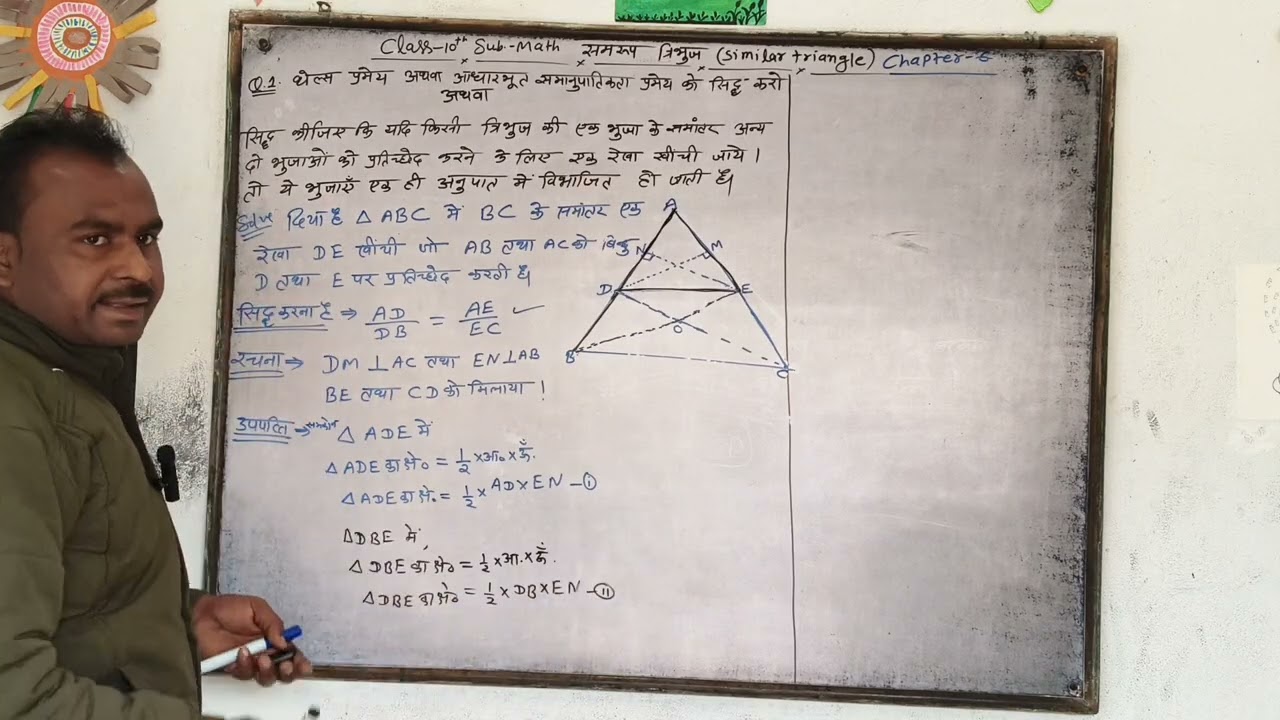 Class-10th Sub-Math समरूप त्रिभुज (Similar triangle) Chapter-6
Q.1. थेल्स प्रमेय अथवा आधारभूत समानुपातिकता प्रमेय को सिद्ध करो
अथवा
सिद्ध कीजिए कि यदि किसी त्रिभुज की एक भुजा के समांतर अन्य
दो भुजाओं को प्रतिच्छेद करने के लिए एक रेखा खींची जाये।
तो ये भुजाएँ एक ही अनुपात में विभाजित हो जाती है।
Solve दिया है △ ABC में BC के समांतर एक
रेखा DE खींची जो AB तथा AC को बिन्दु
D तथा E पर प्रतिच्छेद करती है।
सिद्ध करना है ⇒ AD/DB = AE/EC ✓
रचना → DM ⊥ AC तथा EN ⊥ AB
BE तथा CD को मिलाया।
उपपत्ति → समकोण △ ADE में
△ ADE का क्षे० = 1/2 × आ० × ऊँ.
△ ADE का क्षे० = 1/2 × AD × EN —(I)
△DBE में,
△ DBE का क्षे० = 1/2 × आ. × ऊँ.
△DBE का क्षे० = 1/2 × DB × EN —(II)
A
N
M
D
E
O
B
C